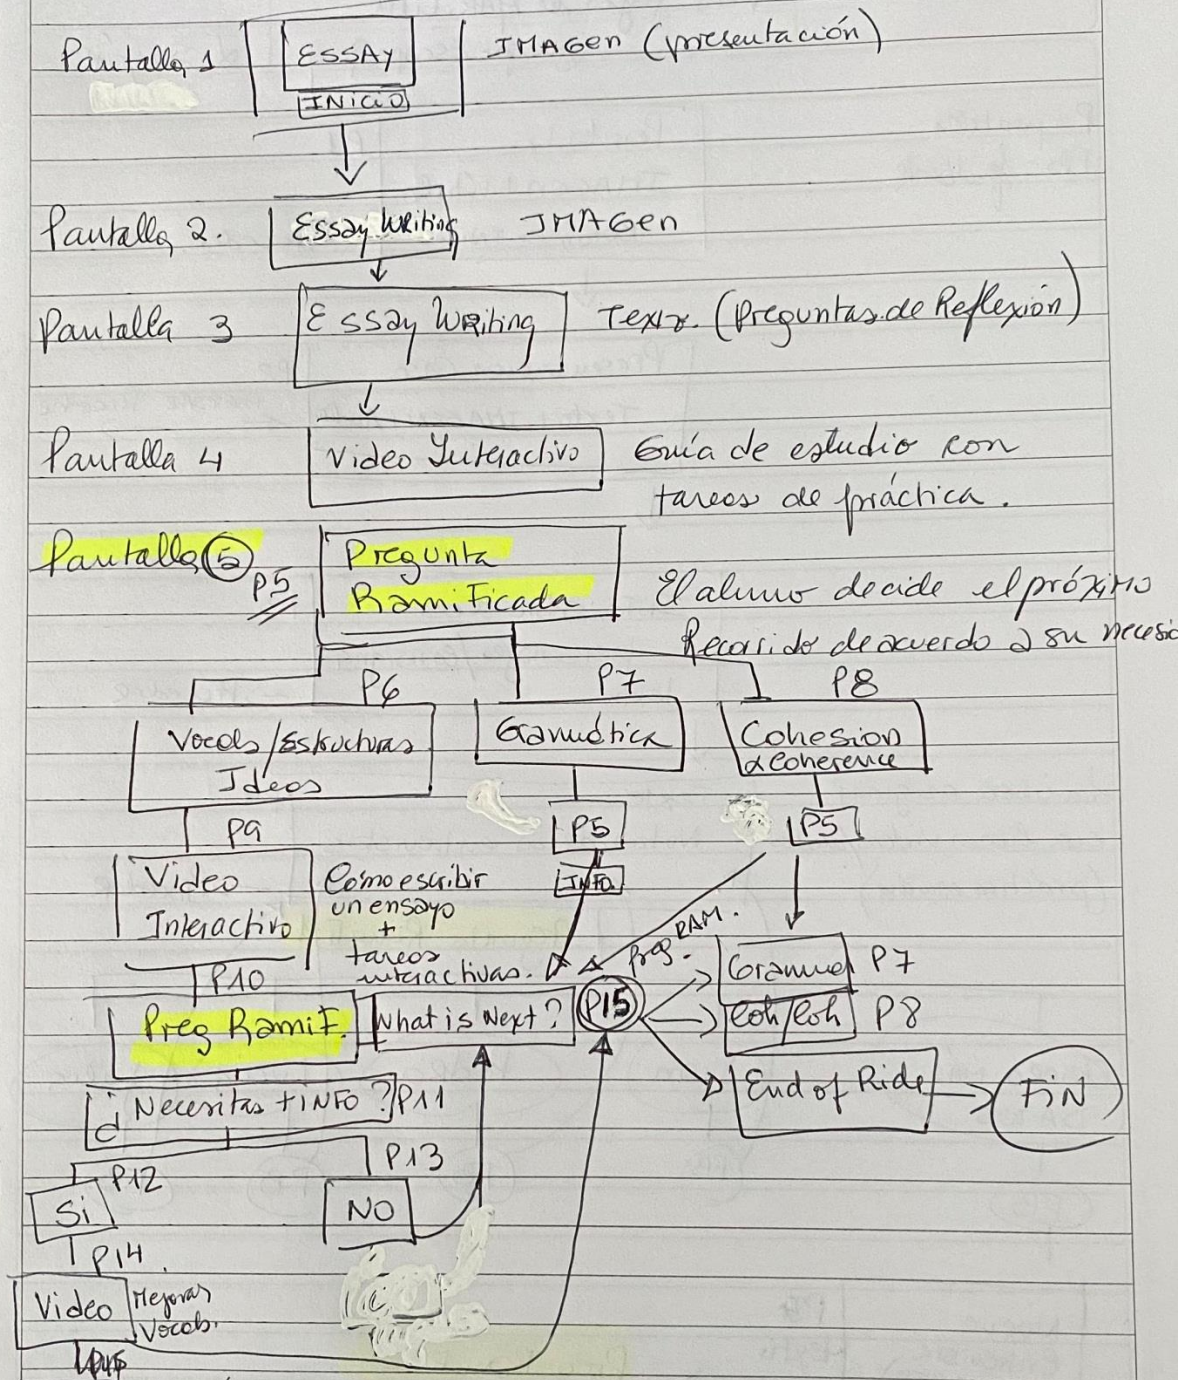 Pantalla 1
ESSAY
INICIO
IMAGen (presentación)
Pantalla 2.
Essay Writing
IMAGen
Pantalla 3
Essay Writing
Texto. (Preguntas de Reflexión)
Pantalla 4
Video Interactivo
Guía de estudio con
tareas de práctica.
Pantalla 5
P5
Pregunta
Ramificada
El alumno decide el próximo
Recorrido de acuerdo a su necesi
P6
P7
P8
Vocab/Estructuras
Ideas
Gramática
Cohesion
& Coherence
P9
P5
P5
Video
Interactivo
Cómo escribir
un ensayo
+
tareas
interactivas.
INFO.
Preg. RAM.
P10
Preg Ramif.
What is Next?
P15
Gramma
P7
Coh/Coh
P8
End of Ride
FiN
¿Necesitas +iNFO?
P11
P12
P13
Si
NO
P14.
Video
Mejoras
Vocab.